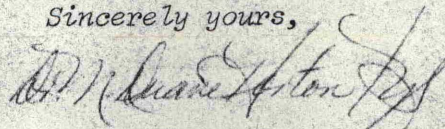 Sincerely yours,
Dr. N Duane Heston